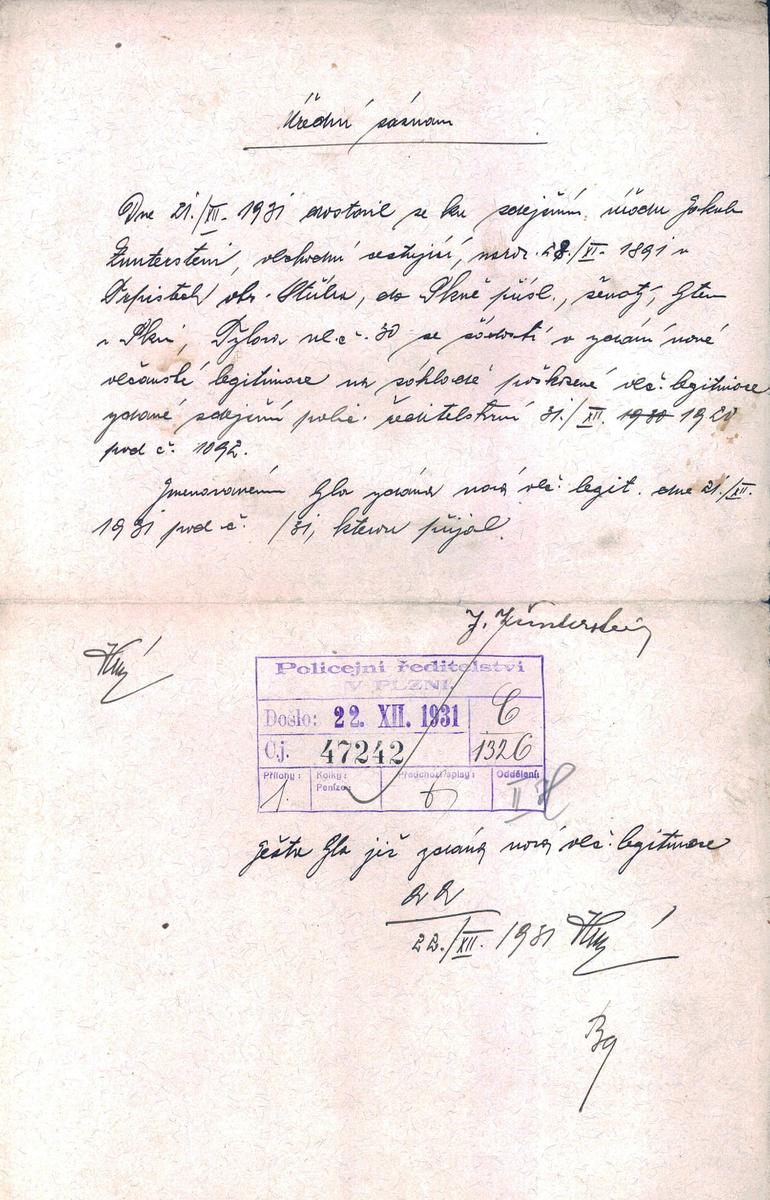 Úřední záznam
Dne 21./XII. 1931 dostavil se ku zdejšímu úřadu Jakub
Zunterstein, obchodní cestující, naroz. 28./VI. 1891 v
Trpistech okr. Stříbro, do Plzně přísl., ženatý, bytem
v Plzni, Tylova ul. č. 30 se žádostí o vydání nové
občanské legitimace na základě poškozené obč. legitimace
vydané zdejším polic. ředitelstvím 31./XII. 1930 1920
pod č. 1092.
Jmenovanému byla vydána nová obč. legit. dne 21./XII.
1931 pod č. /31, kterou přijal.
J. Zunterstein
Policejní ředitelství
V PLZNI.
Došlo: 22. XII. 1931 C
Čj. 47242 1326
Přílohy: Kolky: Předchozí spisy: Oddělení:
Peníze:
1. II
ježto byla již vydána nová obč. legitimace
a a
22./XII. 1931